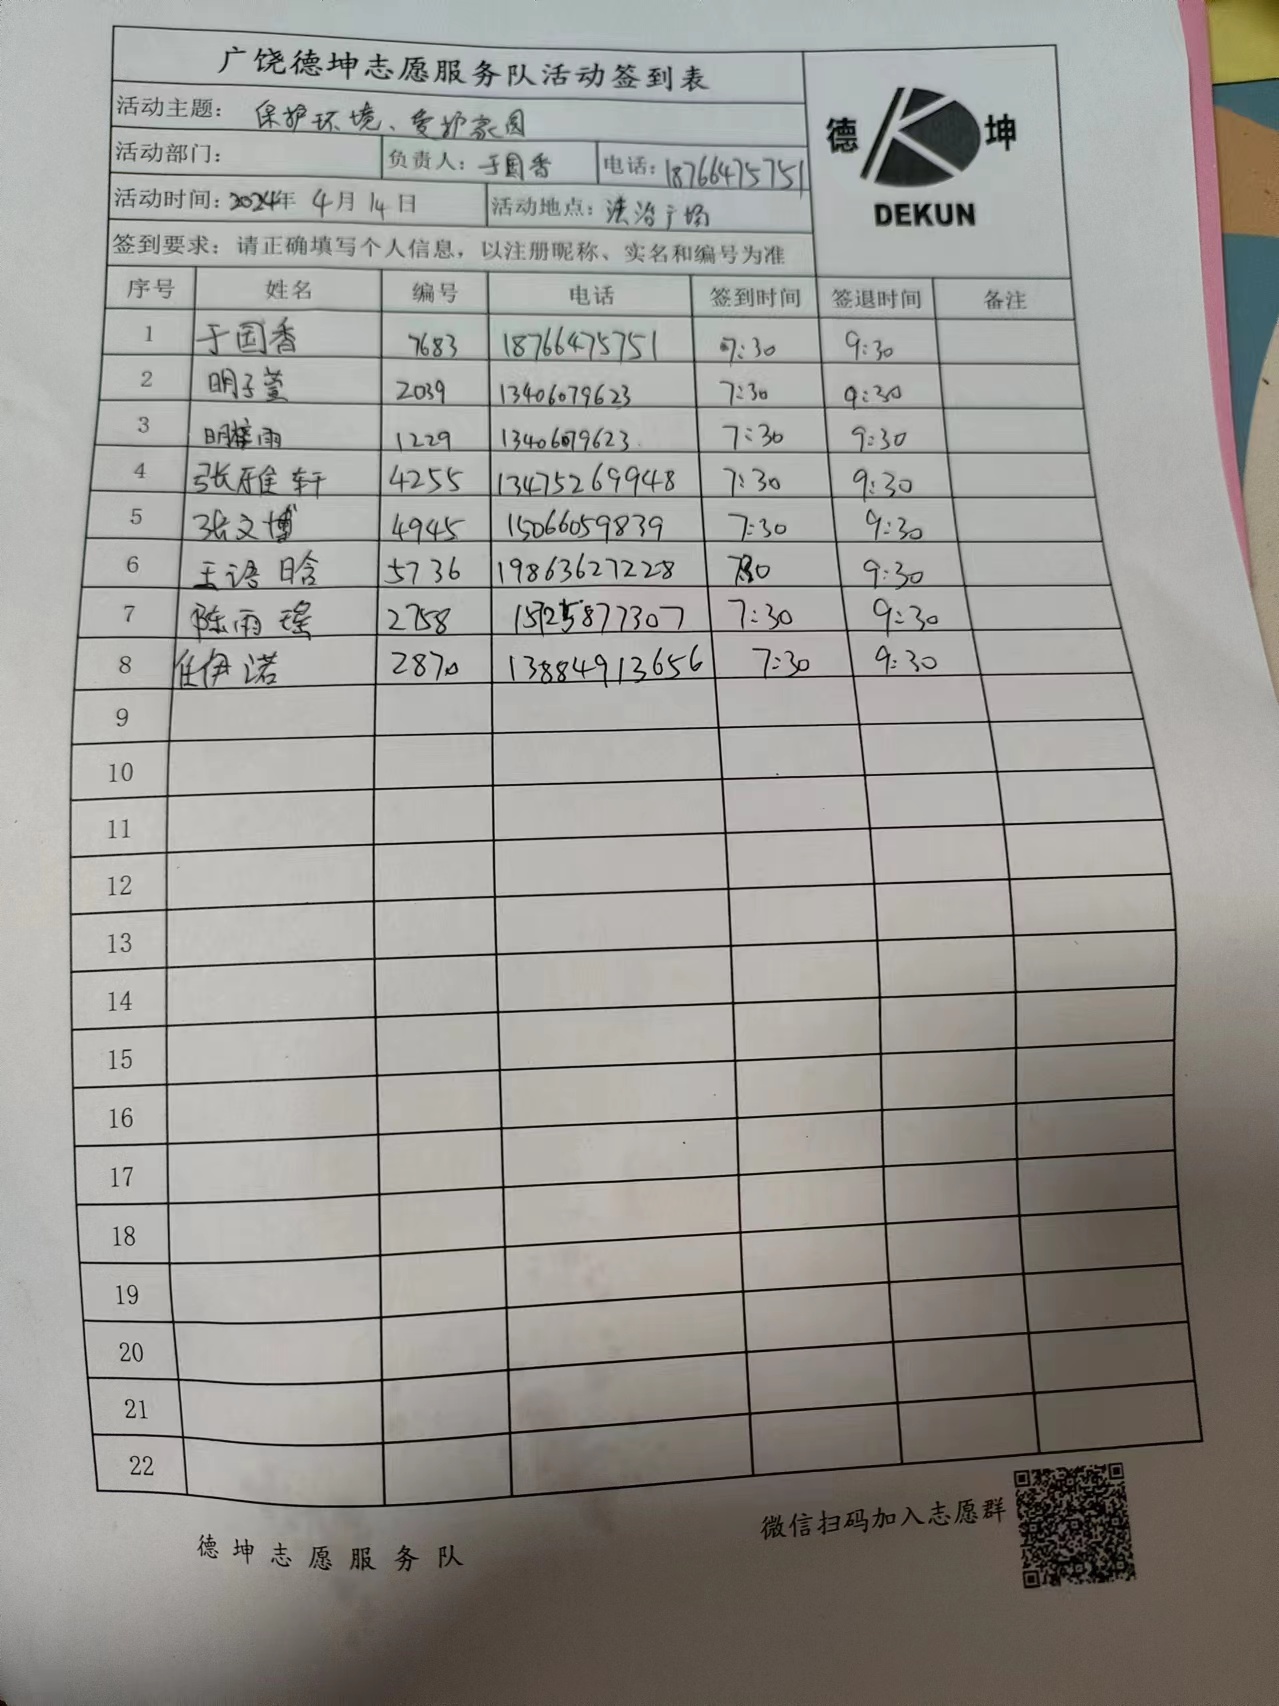 广饶德坤志愿服务队活动签到表
德 坤
DEKUN
活动主题: 保护环境、爱护家园
活动部门: 负责人: 于国香 电话: 18766475751
活动时间: 2024年 4月 14日 活动地点: 法治广场
签到要求: 请正确填写个人信息, 以注册昵称、实名和编号为准
序号 姓名 编号 电话 签到时间 签退时间 备注
1 于国香 7683 18766475751 7:30 9:30
2 明子萱 2039 13406079623 7:30 9:30
3 明梓雨 1229 13406079623 7:30 9:30
4 张雅轩 4255 13475269948 7:30 9:30
5 张文博 4945 15066059839 7:30 9:30
6 王语晗 5736 19863627228 7:30 9:30
7 陈雨瑶 2758 9:30 7:30
8 任伊诺 2870 13884913656 7:30 9:30
9
10
11
12
13
14
15
16
17
18
19
20
21
22
德坤志愿服务队
微信扫码加入志愿群